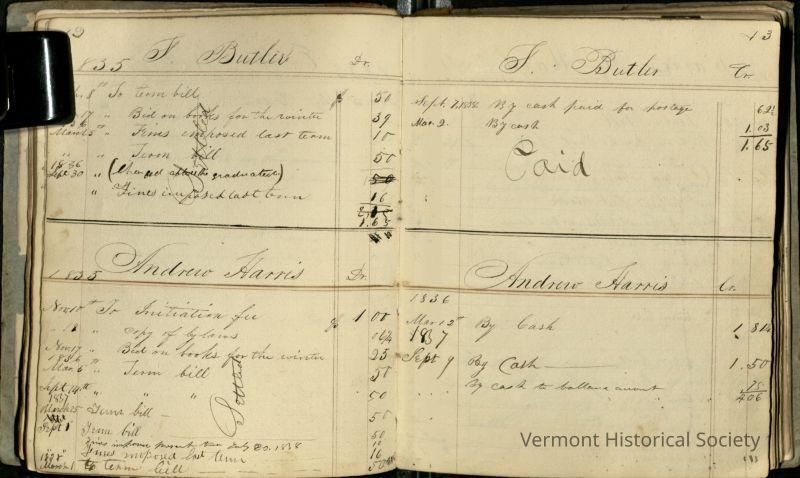 12
1835 S. Butler Dr.
8th To term bill 50
17 " Bid on books for the winter 39
March 5 " Fines imposed last term 10
" " Term bill 50
1836
Sept 30 " (Charged after he graduated) 50
" Fines imposed last term 16
1.65
Settled
1835 Andrew Harris Dr.
Nov 10th To Initiation fee $ 1 00
" " copy of bylaws 06¼
Nov. 17 " Bid on books for the winter 25
1836
Mar. 6 " Term bill 50
Sept 14th " " " 50
1837
March 25 " Term bill — 50
Sept 1 Term bill 50
Fines imposed last term 16
1838
March 1 to term bill — 50
Settled
13
S. Butler Cr.
Sept. 7. 1836 By cash paid for postage 62½
Mar. 2. By cash 1.03
1.65
Paid
Andrew Harris Cr.
1836
Mar 12th By Cash 1 81¼
1837
Sept 9 By Cash — 1.50
By cash to ballance account 75
4 06
Vermont Historical Society